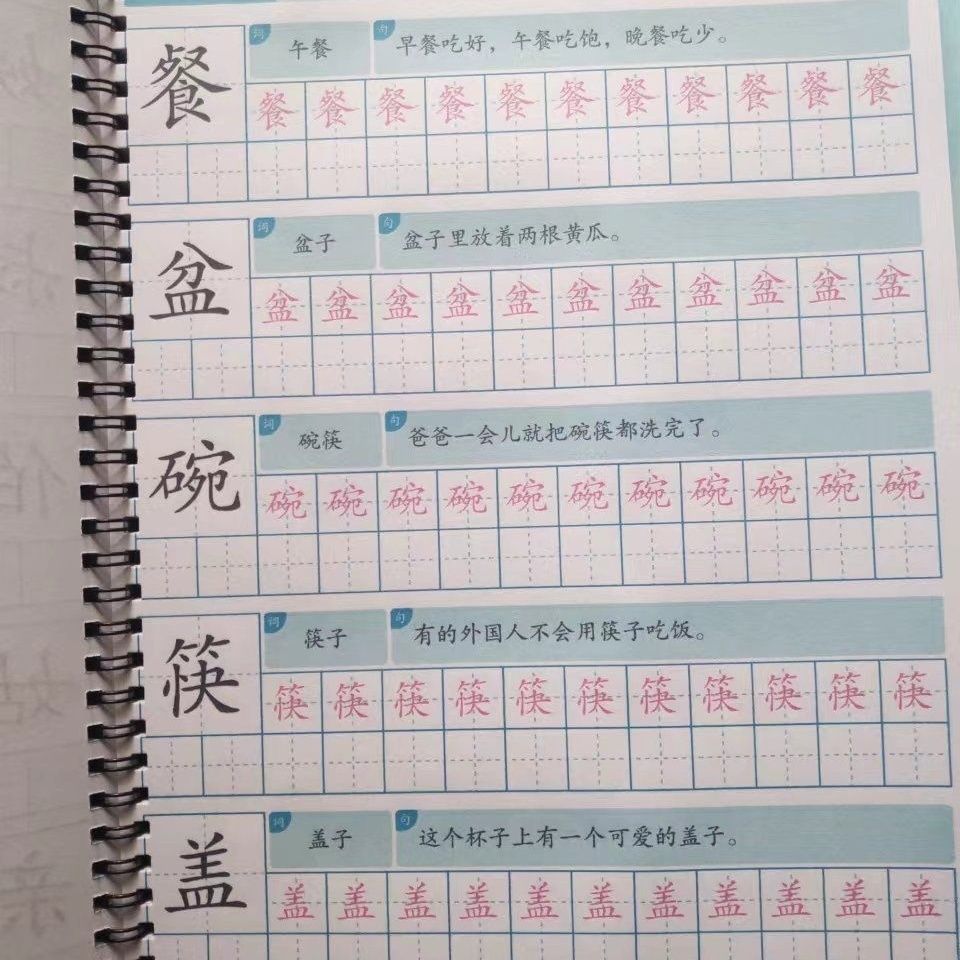 餐
词 午餐 句 早餐吃好，午餐吃饱，晚餐吃少。
餐 餐 餐 餐 餐 餐 餐 餐 餐 餐 餐
盆
词 盆子 句 盆子里放着两根黄瓜。
盆 盆 盆 盆 盆 盆 盆 盆 盆 盆 盆
碗
词 碗筷 句 爸爸一会儿就把碗筷都洗完了。
碗 碗 碗 碗 碗 碗 碗 碗 碗 碗 碗
筷
词 筷子 句 有的外国人不会用筷子吃饭。
筷 筷 筷 筷 筷 筷 筷 筷 筷 筷 筷
盖
词 盖子 句 这个杯子上有一个可爱的盖子。
盖 盖 盖 盖 盖 盖 盖 盖 盖 盖 盖